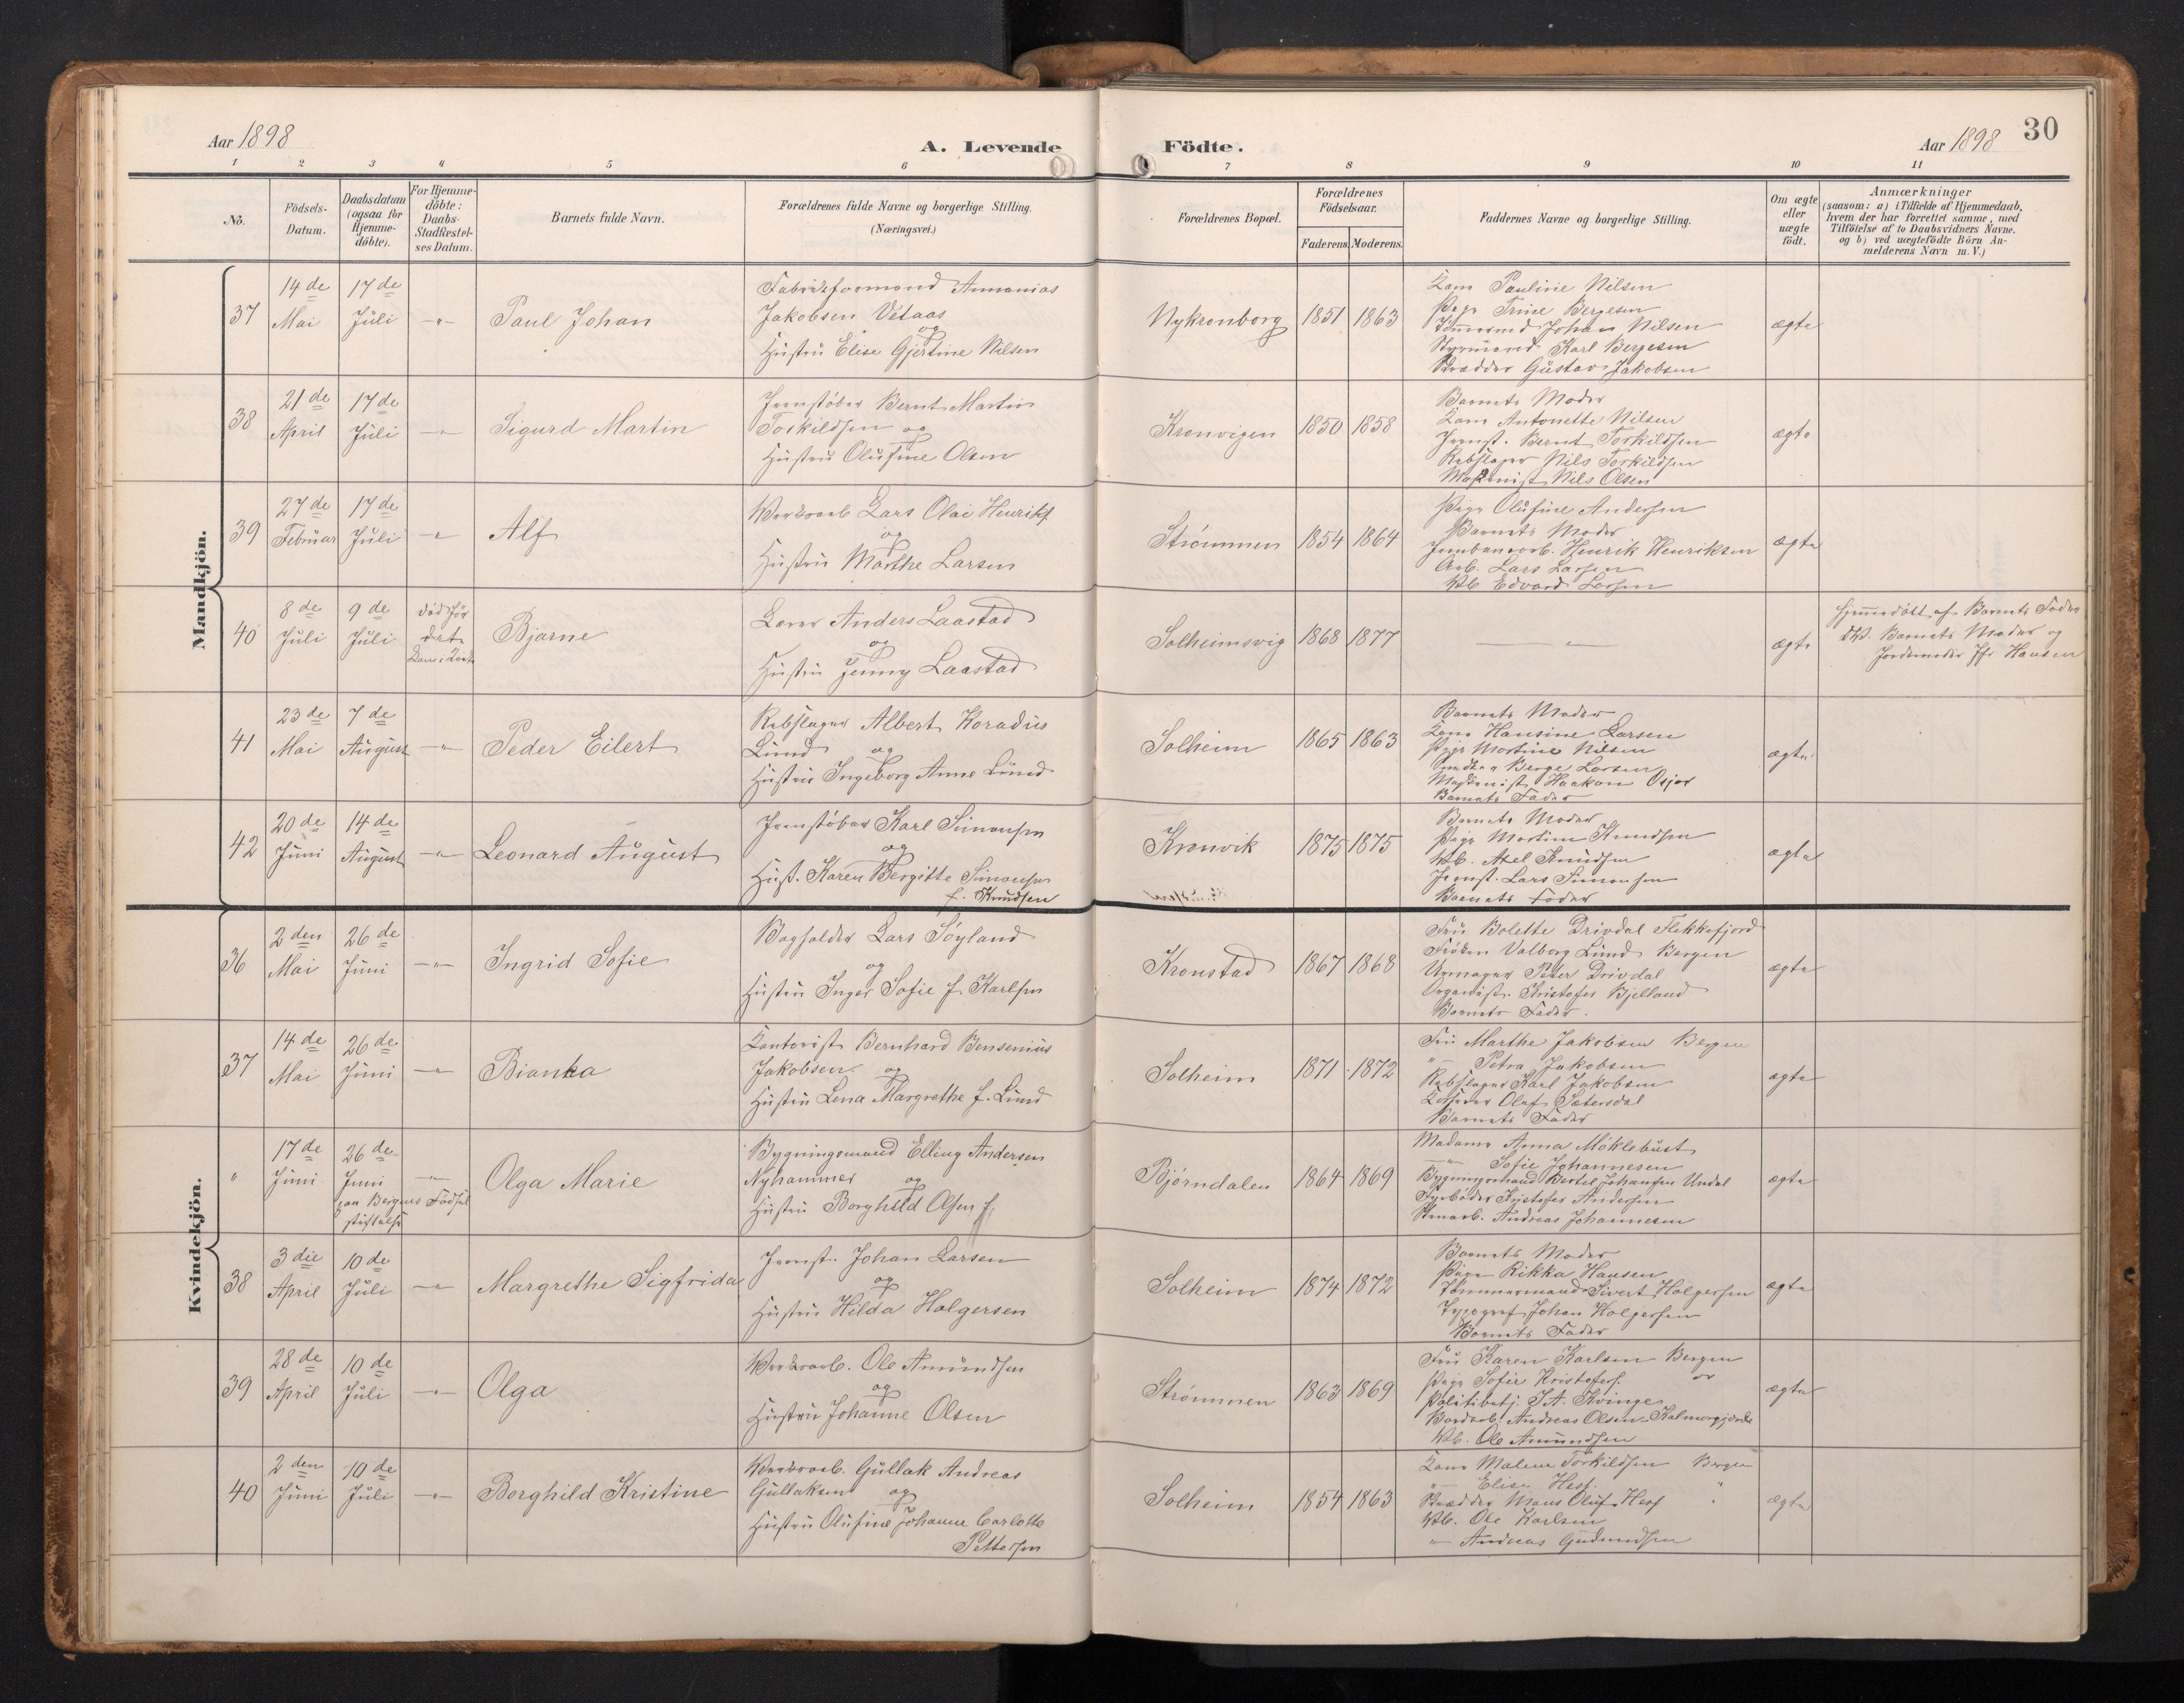 Aar 1898
A. Levende
Födte.
Aar 1898
30
1 2 3 4 5 6 7 8 9 10 11
No.
Födsels-Datum.
Daabsdatum (ogsaa for Hjemme-döbte).
For Hjemme-döbte: Daabs-Stadfæstel-ses Datum.
Barnets fulde Navn.
Forældrenes fulde Navne og borgerlige Stilling.
(Næringsvei.)
Forældrenes Bopæl.
Forældrenes Födselsaar.
Faderens. Moderens.
Faddernes Navne og borgerlige Stilling.
Om ægte eller uægte födt.
Anmærkninger
(saasom: a) i Tilfælde af Hjemmedaab, hvem der har forrettet samme, med Tilföielse af to Daabsvidners Navne. og b) ved uægtefödte Börn An-melderens Navn m.V.)
Mandkjön.
37
14de Mai
17de Juli
-"-
Paul Johan
Fabrikformand Ammonias
Jakobsen Vetaas
og
Hustru Elise Gjertine Nilsen
Nykronborg
1851 1863
Kone Pauline Nilsen
Pige Trine Bergesen
Tømmermd Johan Nilsen
Styrmand Karl Bergesen
Skrædder Gustav Jakobsen
ægte
38
21de April
17de Juli
-"-
Sigurd Martin
Jernstøber Bernt Martin
Torkildsen og
Hustru Olufine Olsen
Kronvigen
1850 1858
Barnets Moder
Kone Antonette Nilsen
Jernst. Bernt Torkildsen
Rebslager Nils Torkildsen
Maskinist Nils Olsen
ægte
39
27de Februar
17de Juli
-"-
Alf
Værksarb. Lars Olai Henriks.
og
Hustru Marthe Larsen
Strømmen
1854 1864
Pige Olufine Andersen
Barnets Moder
Jernbanearb. Henrik Henriksen
Arb. Lars Larsen
Vb. Edvard Larsen
ægte
40
8de Juli
9de Juli
død før
Bjarne
Lærer Anders Laastad
og
Hustru Jenny Laastad
Solheimsvig
1868 1877
-"-
ægte
Hjemmedøbt af Barnets Fader
Barnets Moder og
Jordemoder Hansen
41
23de Mai
7de August
-"-
Peder Eilert
Rebslager Albert Koradius
Lund og
Hustru Ingeborg Anne Lund
Solheim
1865 1863
Barnets Moder
Kone Hansine Larsen
Pige Martine Nilsen
Berge Larsen
Maskinist Haakon Osjor
Barnets Fader
ægte
42
20de Juni
14de August
-"-
Leonard August
Jernstøber Karl Simonsen
og
Hust. Karen Bergitte Simonsen
f. Knudsen
Kronvik
1875 1875
Barnets Moder
Pige Martine Knudsen
Vb. Axel Knudsen
Jernst. Lars Simonsen
Barnets Fader
ægte
Kvindekjön.
36
2den Mai
26de Juni
-"-
Ingrid Sofie
Bogholder Lars Søyland
og
Hustru Inger Sofie f. Karlsen
Kronstad
1867 1868
Fru Bolette Drivdal Flekkefjord
Frøken Valborg Lund Bergen
Urmager Peter Drivdal
Organist Kristofer Bjelland
Barnets Fader.
ægte
37
14de Mai
26de Juni
-"-
Bianka
Kontorist Bernhard Bensenius
Jakobsen og
Hustru Lena Margrethe f. Lund
Solheim
1871 1872
Fru Marthe Jakobsen Bergen
-"- Petra Jakobsen
Rebslager Karl Jakobsen
Olaf Sætersdal
Barnets Fader
ægte
"
17de Juni
26de Juni
paa Bergens Fødsels
stiftelse
-"-
Olga Marie
Bygningsmand Elling Andersen
Nyhammer og
Hustru Borghild Olsen f.
Bjørndalen
1864 1869
Madame Anna Møklebust
-"- Sofie Johannesen
Bygningsmand Bertel Johansen Undal
Fyrbøder Kristofer Andersen
Stenarb. Andreas Johannesen
ægte
38
3die April
10de Juli
-"-
Margrethe Sigfrida
Jernst. Johan Larsen
og
Hustru Hilda Holgersen
Solheim
1874 1872
Barnets Moder
Pige Rikka Hansen
Tømmermand Sivert Holgersen
Typograf Johan Holgersen
Barnets Fader
ægte
39
28de April
10de Juli
-"-
Olga
Værksarb. Ole Amundsen
og
Hustru Johanne Olsen
Strømmen
1863 1869
Fru Karen Karlsen Bergen
Pige Sofie Kristofers.
Politibetj. J. A. Kvinge
Bordarb. Andreas Olsen
Vb. Ole Amundsen
ægte
40
2den Juni
10de Juli
-"-
Borghild Kristine
Værksarb. Gullak Andreas
Gullaksen og
Hustru Olufine Johanne Carlotte
Pettersen
Solheim
1854 1863
Kone Malene Torkildsen Bergen
-"- Elise Hess "
Skrædder Mons Oluf Hess "
Vb. Ole Karlsen
-"- Andreas Gudmundsen
ægte